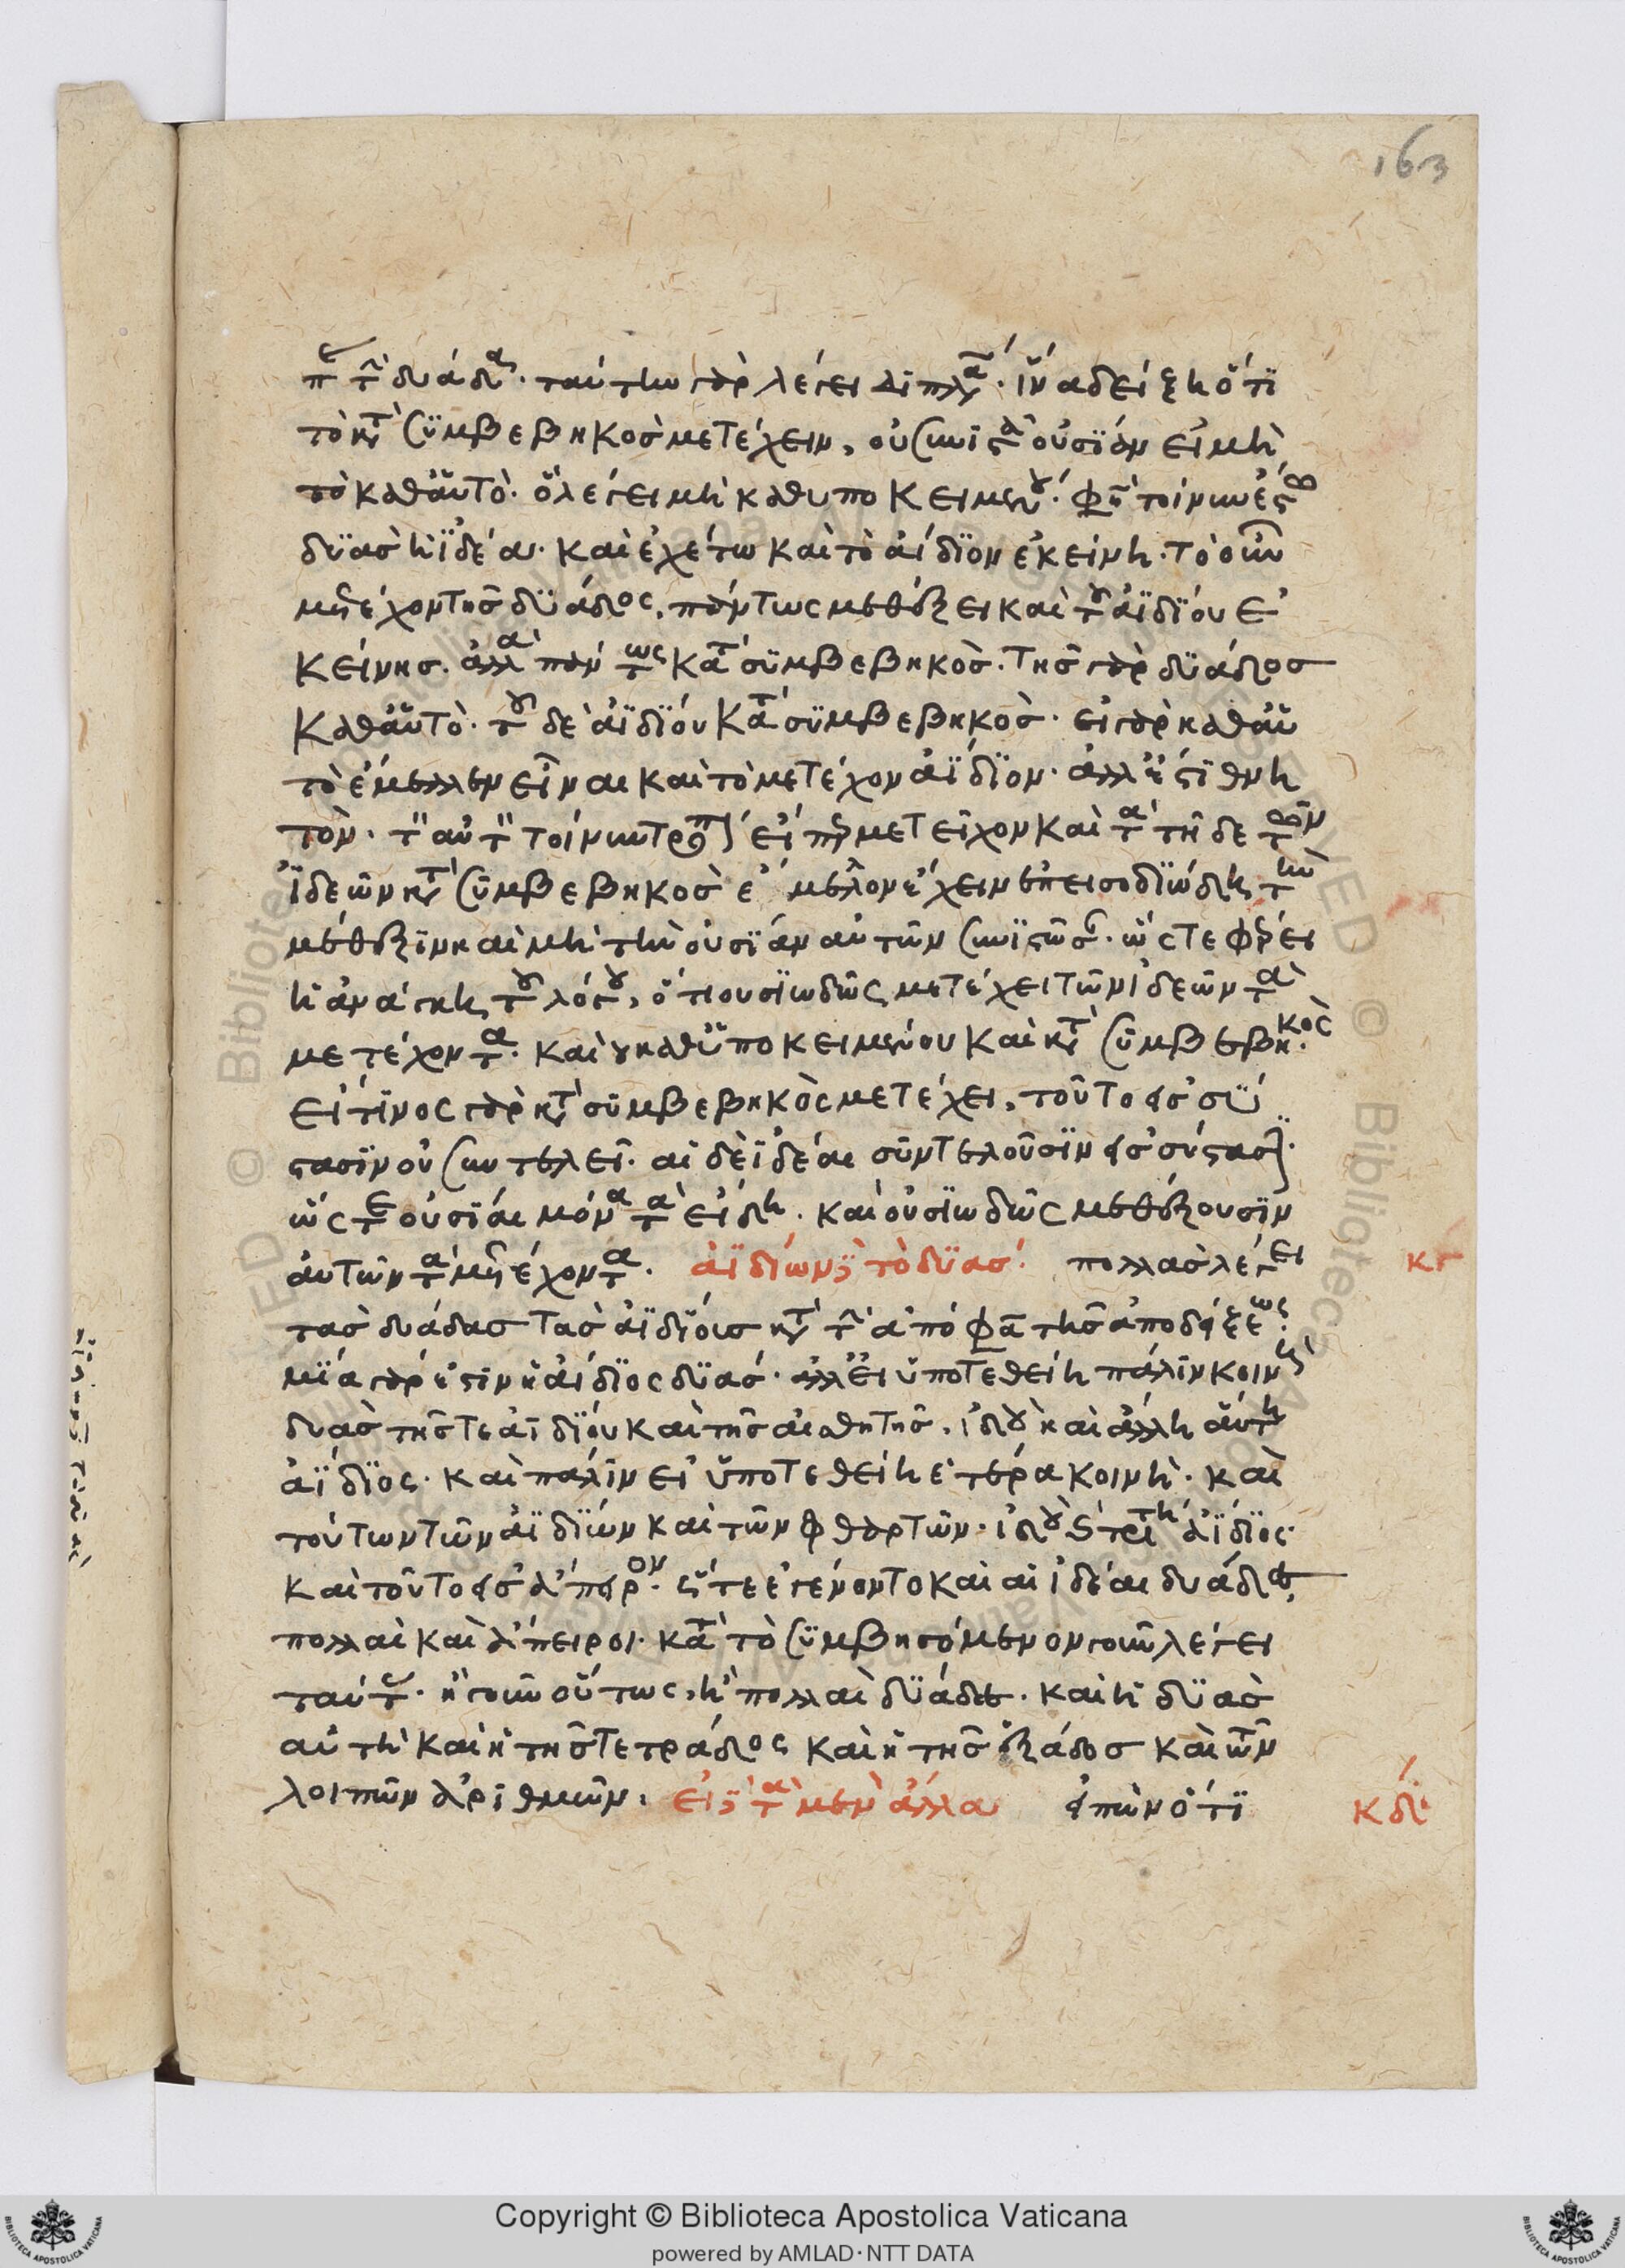 163
π τ δυάδα. ταύτην γὰρ λέγει διπλ. ἵνα δείξη ὅτι
τὸ κτ συμβεβηκὸς μετέχειν, οὐ συνιστᾶ οὐσίαν εἰ μὴ
τὸ καθ αὑτὸ. ὃ λέγει μὴ καθ υποκειμένου. φη τοίνυν ἔστω
δυὰς ἡ ἰδέα. καὶ ἐχέτω καὶ τὸ ἀίδιον ἐκείνη. τὸ οὖν
μετέχον τῆς δυάδος, πάντως μεθέξει καὶ τοῦ ἀϊδίου ἐ
κείνης. ἀλλὰ πάντως κατὰ συμβεβηκὸς. τῆς γὰρ δυάδος
καθ αὑτὸ. τοῦ δὲ ἀϊδίου κατὰ συμβεβηκὸς. εἰ γὰρ καθ αὑ
τὸ ἔμελλεν εἶναι καὶ τὸ μετέχον ἀΐδιον. ἀλλ ἔστι θνη
τὸν. τ αὐτ τοίνυν τρόπ εἴπερ μετεῖχον καὶ τὰ τῆδε τῶν
ἰδεῶν κτ συμβεβηκὸς ἔμελλον ἔχειν ἐπεισοδιώδη τὴν
μέθεξιν καὶ μὴ τὴν οὐσίαν αὐτῶν συνιστῶσ. ὥςτε φέρει
ἡ ἀνάγκη τοῦ λόγου, ὅτι ουσιωδῶς μετέχει τῶν ἰδεῶν τὰ
μετέχοντα. καὶ οὐ καθ ὑποκειμένου καὶ κτ συμβεβηκὸς
εἴ τινος γὰρ κτ συμβεβηκὸς μετέχει, τοῦτο εἰς σύ
στασιν οὐ συντελεῖ. αἱ δὲ ἰδέαι συντελοῦσιν εἰς σύστασιν.
ὥςτε οὐσίαι μόνα τὰ εἴδη. καὶ οὐσιωδῶς μεθέξουσιν
αὐτῶν τὰ μετέχοντα. ἀϊδίων γ τὸ δυάσ. πολλὰς λέγει κγ
τὰς δυάδας τὰς ἀϊδίους κτ τ ἀπόφα τῆς ἀποδείξεως.
μία γάρ ἐστιν ἡ ἀίδιος δυάς. ἀλλ εἰ ὑποτεθείη πάλιν κοινὴ
δυὰς τῆς τε ἀϊδίου καὶ τῆς αἰσθητῆς, ἰδοὺ καὶ ἄλλη αὕτη
ἀΐδιος. καὶ πάλιν εἰ ὑποτεθείη ἑτέρα κοινὴ. καὶ
τούτων τῶν ἀϊδίων καὶ τῶν φθαρτῶν. ἰδοὺ καὶ τρίτη ἀΐδιος.
καὶ τοῦτο εἰς ἄπειρον. ὥςτε ἐγένοντο καὶ αἱ ἰδέαι δυάδες
πολλαὶ καὶ ἄπειροι. κατὰ τὸ συμβησόμενον γοῦν λέγει
ταύτ. ἢ γοῦν οὕτως, ἢ πολλαὶ δυάδες. καὶ ἡ δυὰς
αὐτὴ καὶ ἡ τῆς τετράδος καὶ ἡ τῆς ἑξάδος καὶ τῶν
λοιπῶν ἀριθμῶν. εἰ γ τὰ μὲν ἄλλα εἰπὼν ὅτι κδ
Copyright © Biblioteca Apostolica Vaticana
powered by AMLAD·NTT DATA